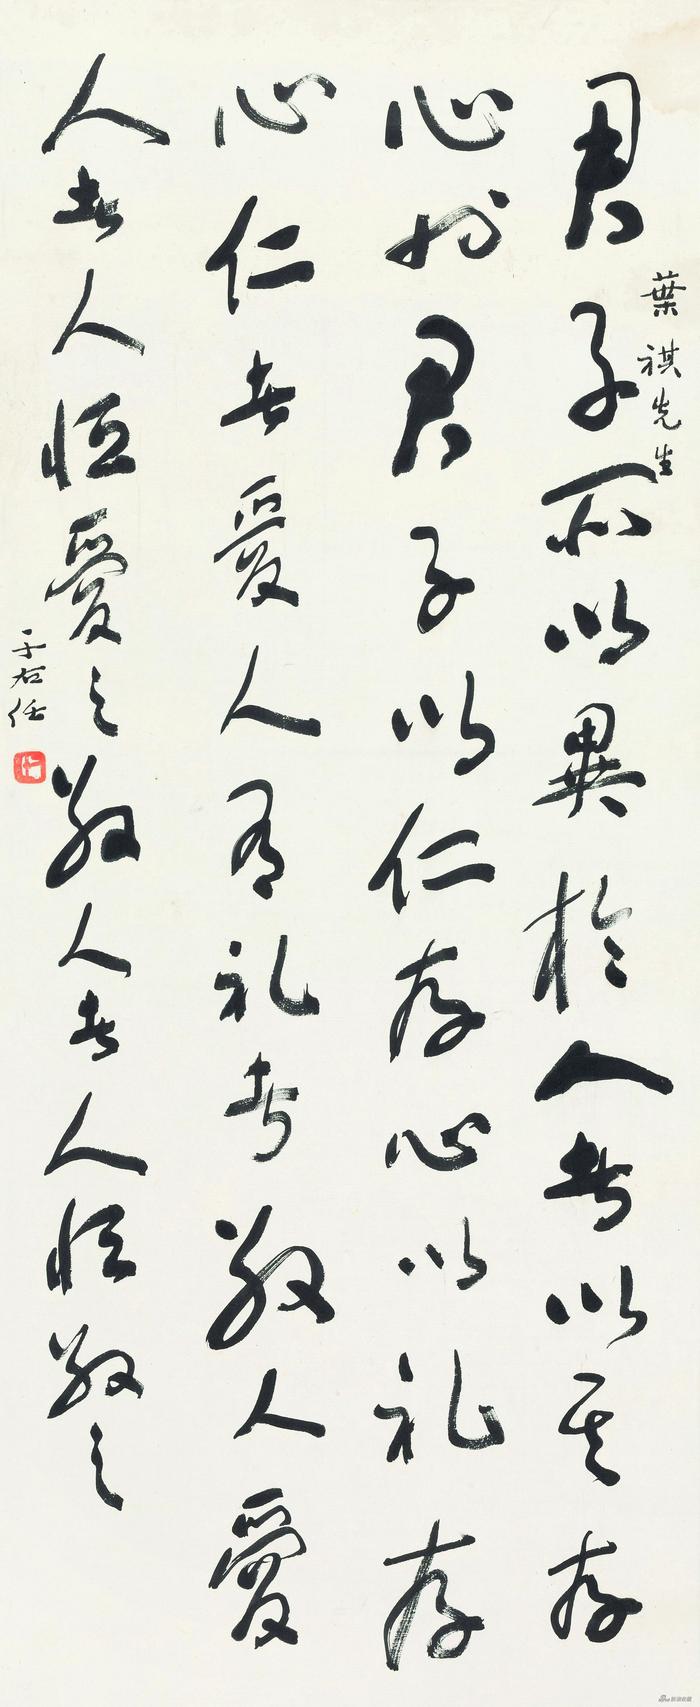 葉祺先生
君子所以異於人者以其存
心也君子以仁存心以礼存
心仁者愛人有礼者敬人愛
人者人恒愛之敬人者人恒敬之
于右任